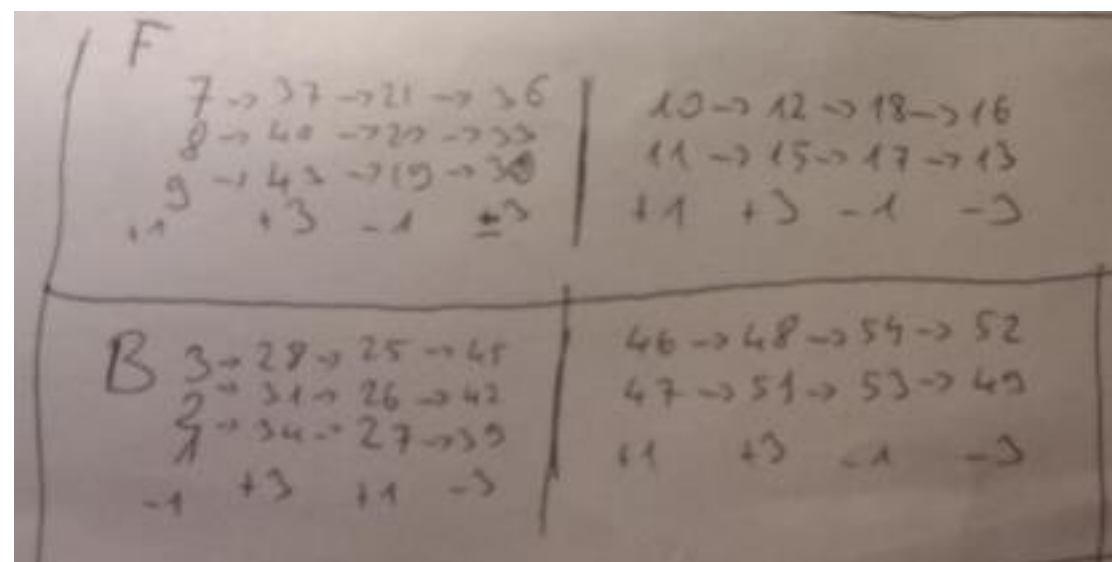 F
7 -> 37 -> 21 -> 36
8 -> 40 -> 20 -> 33
9 -> 43 -> 19 -> 30
+1 +3 -1 ±3
10 -> 12 -> 18 -> 16
11 -> 15 -> 17 -> 13
+1 +3 -1 -3
B
3 -> 28 -> 25 -> 45
2 -> 31 -> 26 -> 42
1 -> 34 -> 27 -> 39
-1 +3 +1 -3
46 -> 48 -> 54 -> 52
47 -> 51 -> 53 -> 49
+1 +3 -1 -3